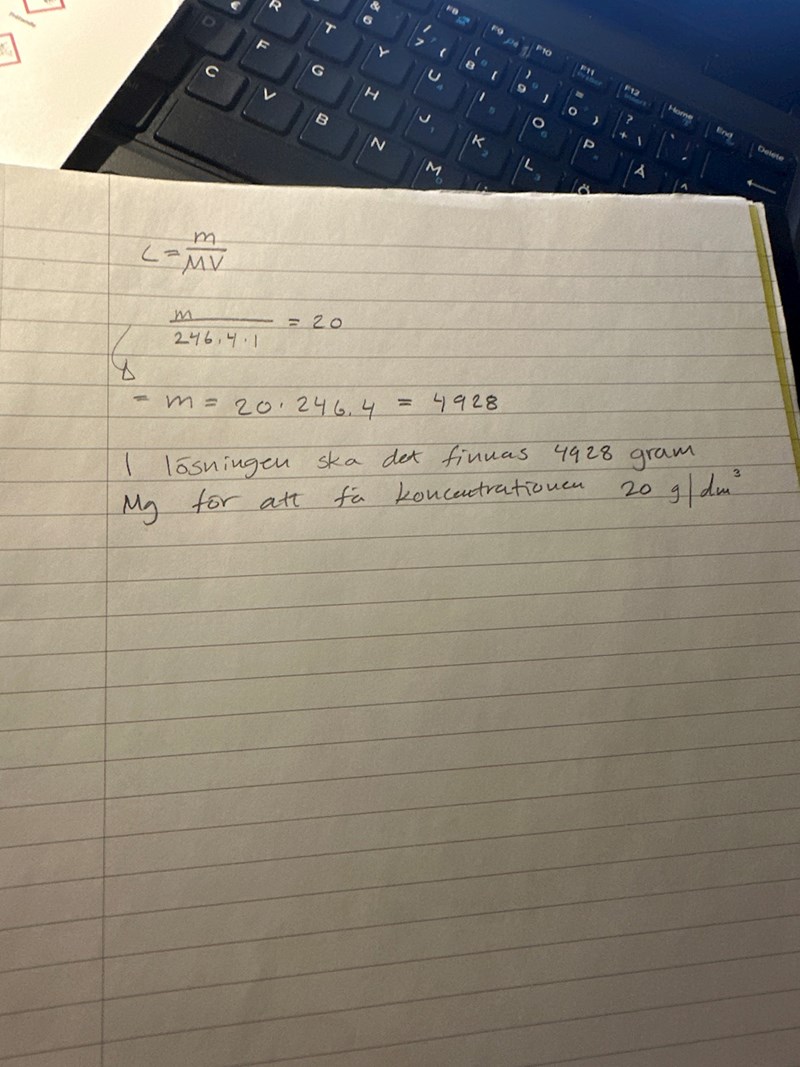 R T & 6 / 7 ( 8 ) 9 = 0 ? + F8 F9 F10 F11 F12 Home End Delete
D F Y U I O P Å ^
C G H J K L Ö
V B N M
C = m / MV
m / 246.4 · 1 = 20
= m = 20 · 246.4 = 4928
I lösningen ska det finnas 4928 gram
Mg för att få koncentrationen 20 g/dm³